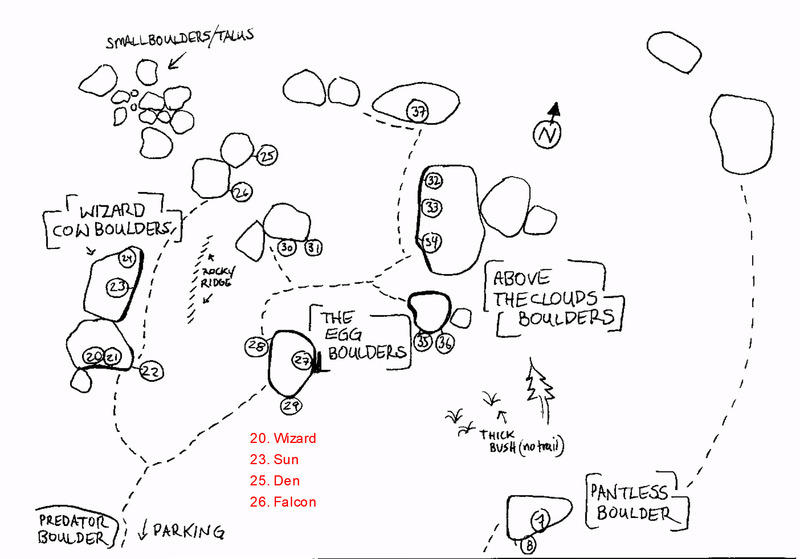 SMALL BOULDERS/TALUS
37
N
25
26
32
33
34
WIZARD
COW BOULDERS
24
23
30 31
ROCKY
RIDGE
ABOVE
THE CLOUDS
BOULDERS
THE
EGG
BOULDERS
28
27
29
35 36
20 21
22
20. Wizard
23. Sun
25. Den
26. Falcon
THICK
BUSH (no trail)
PANTLESS
BOULDER
7
8
PREDATOR
BOULDER
PARKING